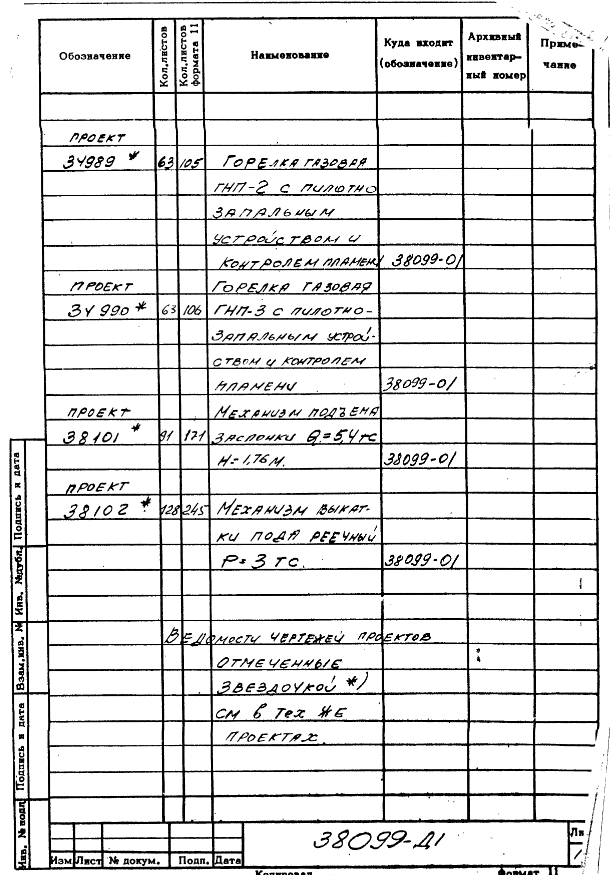 Обозначение Кол.листов Кол.листов формата 11 Наименование Куда входит (обозначение) Архивный инвентар- ный номер Приме- чание
ПРОЕКТ
34989 * 63 105 ГОРЕЛКА ГАЗОВАЯ
ГНП-2 С ПИЛОТНО
ЗАПАЛЬНЫМ
УСТРОЙСТВОМ И
КОНТРОЛЕМ ПЛАМЕНИ 38099-01
ПРОЕКТ ГОРЕЛКА ГАЗОВАЯ
34990 * 63 106 ГНП-3 С ПИЛОТНО-
ЗАПАЛЬНЫМ УСТРОЙ-
СТВОМ И КОНТРОЛЕМ
ПЛАМЕНИ 38099-01
ПРОЕКТ МЕХАНИЗМ ПОДЪЕМА
38101 * 91 121 ЗАСЛОНКИ Q=5,4 ТС
H=1,76 М. 38099-01
ПРОЕКТ
38102 * 128 245 МЕХАНИЗМ ВЫКАТ-
КИ ПОДА РЕЕЧНЫЙ
P=3 ТС. 38099-01
ВЕДОМОСТИ ЧЕРТЕЖЕЙ ПРОЕКТОВ
ОТМЕЧЕННЫЕ
ЗВЕЗДОЧКОЙ *)
СМ В ТЕХ ЖЕ
ПРОЕКТАХ.
Подпись и дата
Инв. № дубл.
Взам. инв. №
Подпись и дата
Инв. № подл
38099-Д1
Ли
Изм Лист № докум. Подп. Дата
Копировал Формат 11